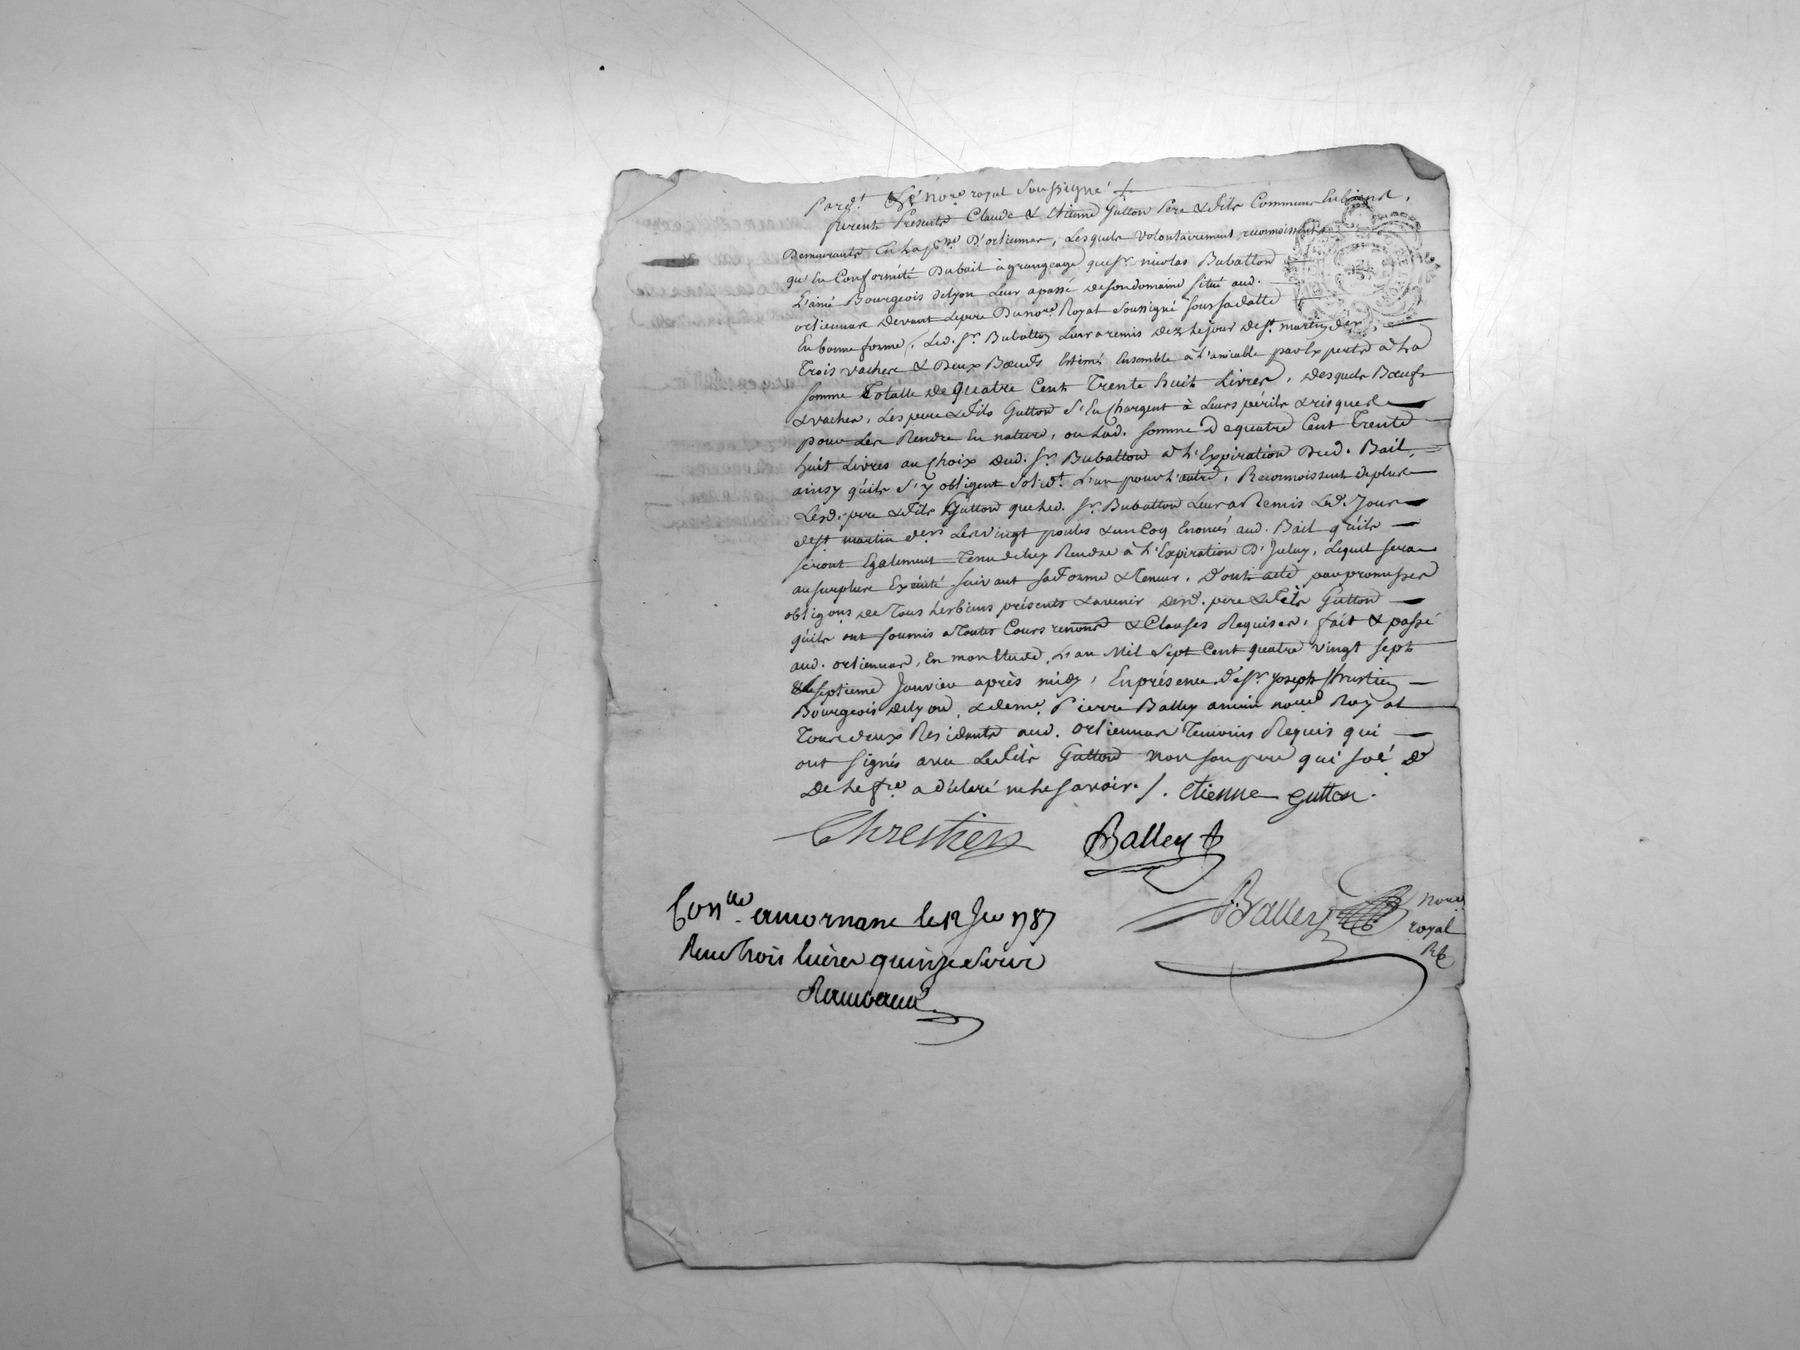 Pard.t Le no.re royal soussigné
furent Présents Claude & Etienne Gutton Père & Fils Communs en biens,
Demeurants En la p.sse D'orlienas, Lesquels volontairement reconnoissent
qu'En Conformité Du bail à grangeage que S.r nicolas Bubatton
L'ainé Bourgeois de Lyon Leur a passé de son domaine situé aud.
orlienas Devant Lepre Du no.re Royal soussigné sous sa datte
En bonne forme, Led. S.r Bubatton Leur a remis dez le jour de S.t martin der,
Trois vaches & Deux Bœufs Estimés Ensemble à l'amiable par Experts à La
somme Totalle de Quatre Cent Trente huit Livres, desquels Bœufs
& vaches, Les pere & Fils Gutton s'En Chargent à Leurs périls & risques
pour Les Rendre En nature, ou Lad. somme de quatre Cent Trente
huit Livres au Choix dud. S.r Bubatton à L'Expiration Dud. Bail,
ainsy qu'ils s'y obligent solid.t L'un pour L'autre, Reconnoissent de plus
Lesd. pere & Fils Gutton que Led. S.r Bubatton Leur a Remis Led. Jour
de S.t martin der Les vingt poules & un Coq Enoncés aud. Bail qu'ils
seront Egalement Tenu de luy Rendre à L'Expiration D'Jceluy, Lequel sera
au surplus Exécuté suivant sa Forme & Teneur. Dont acte par promesses
oblig.ons de Tous Les biens présents & avenir desd. pere & Fils Gutton
qu'ils ont soumis a Toutes Cours renon.s & Clauses Requises, fait & passé
aud. orlienas, En mon Etude, L'an Mil Sept Cent quatre vingt sept
& Le septieme Janvier après midy, En présence de S.r Joseph Chrestien
Bourgeois de Lyon, & de me. Pierre Balley ancien no.re Royal
Tous deux Résidents aud. orlienas Temoins Requis qui
ont signés avec Le Fils Gutton non son pere qui
De Le fre a déclaré ne Le savoir./. Etienne gutton.
Chrestien Balley
Balley no.re
royal
Con.lle a mornant le 12 Jer 1787
Reçu trois livres quinze Sous